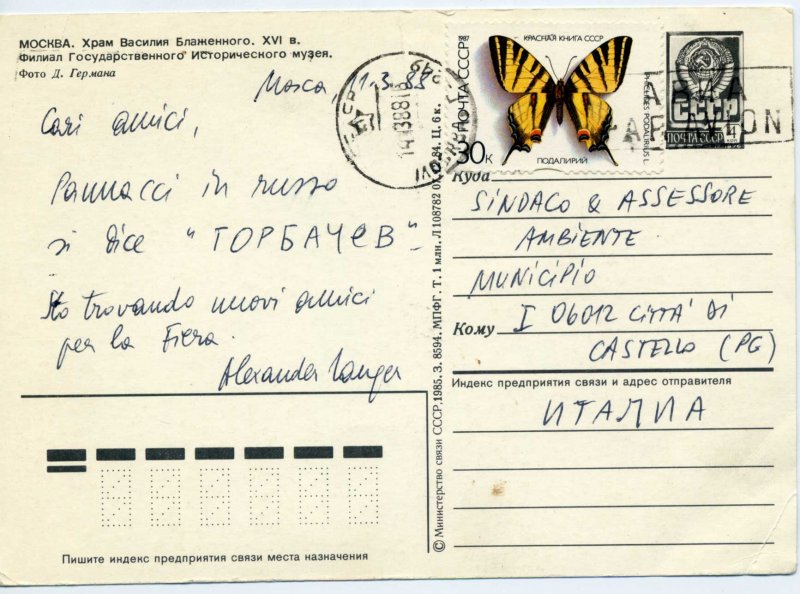 МОСКВА. Храм Василия Блаженного. XVI в.
Филиал Государственного Исторического музея.
Фото Д. Германа
Mosca, 11.3.88
Cari amici,
Pannacci in russo
si dice "ГОРБАЧЕВ"
Sto trovando nuovi amici
per la Fiera.
Alexander Langer
Пишите индекс предприятия связи места назначения
© Министерство связи СССР, 1985. З. 8594. МПФГ. Т. 1 млн. Л108782 84. Ц. 6 к.
1987
КРАСНАЯ КНИГА СССР
ПОЧТА СССР
30к
ПОДАЛИРИЙ
IPHICLIDES PODALIRIUS L.
СССР
ПОЧТА СССР
4
АВИА
PAR AVION
Куда
SINDACO & ASSESSORE
AMBIENTE
MUNICIPIO
Кому
I 06012 CITTÀ DI
CASTELLO (PG)
Индекс предприятия связи и адрес отправителя
ИТАЛИА